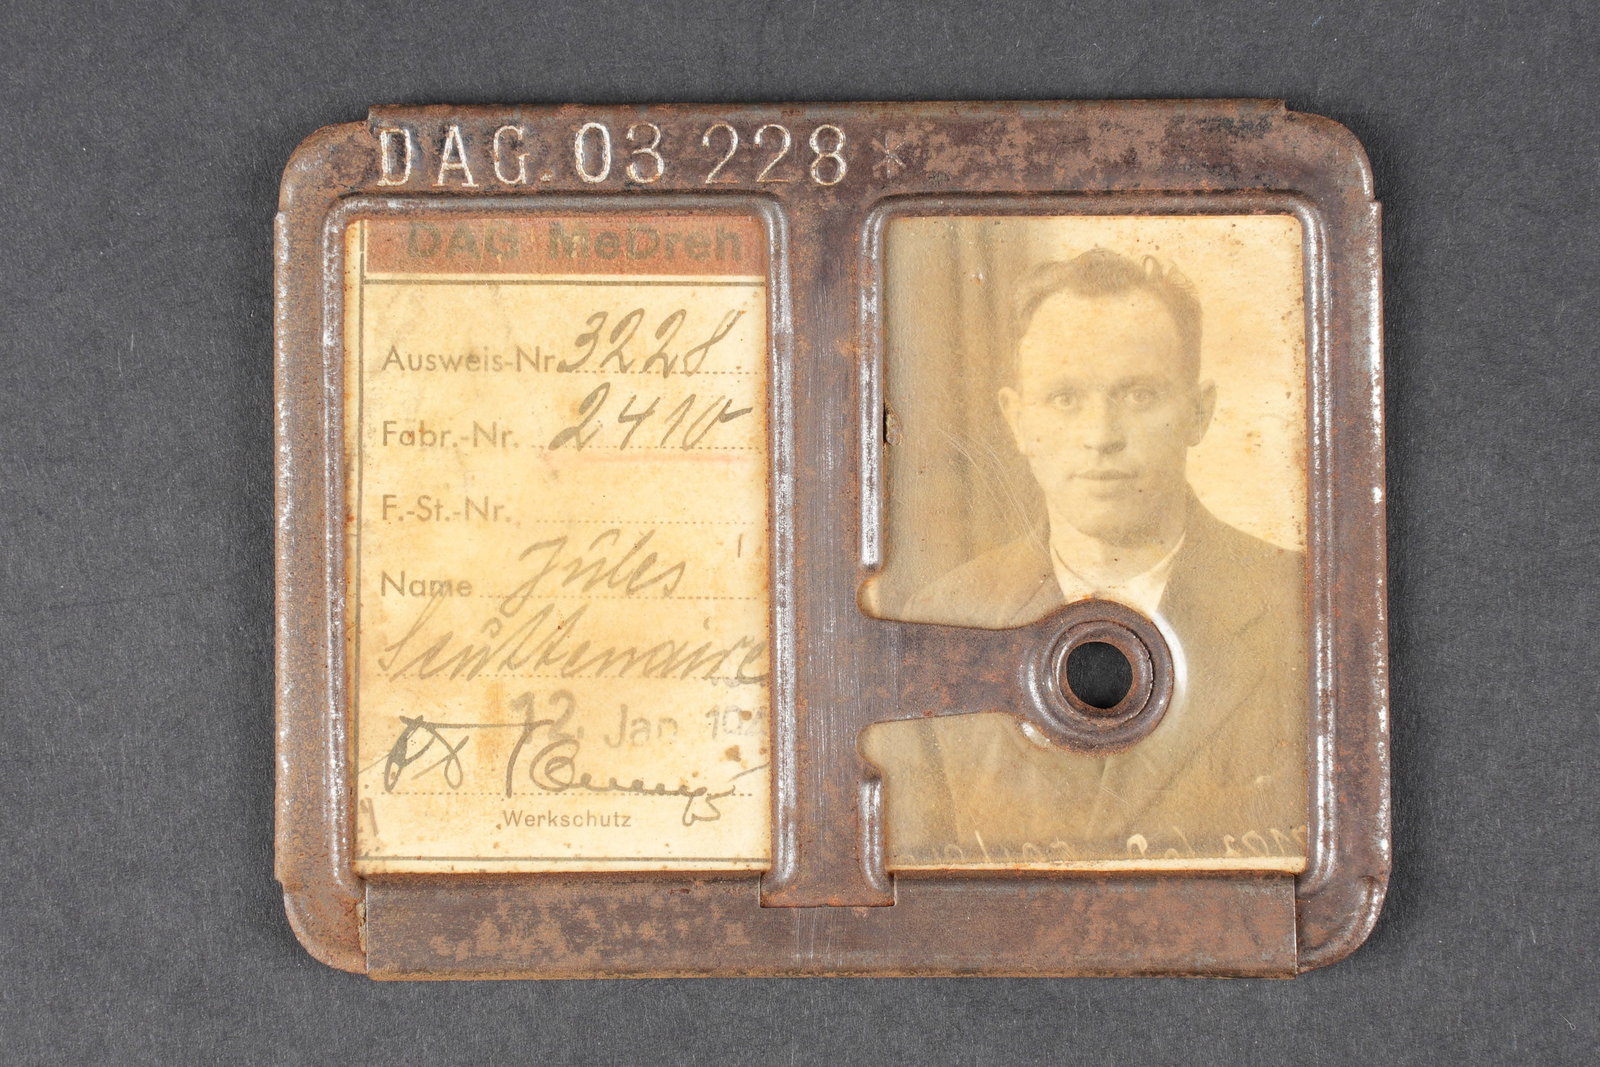 DAG. 03 228 *
DAG MeDreh
Ausweis-Nr. 3228
Fabr.-Nr. 2410
F.-St.-Nr.
Name Jules
12. Jan 194
Werkschutz